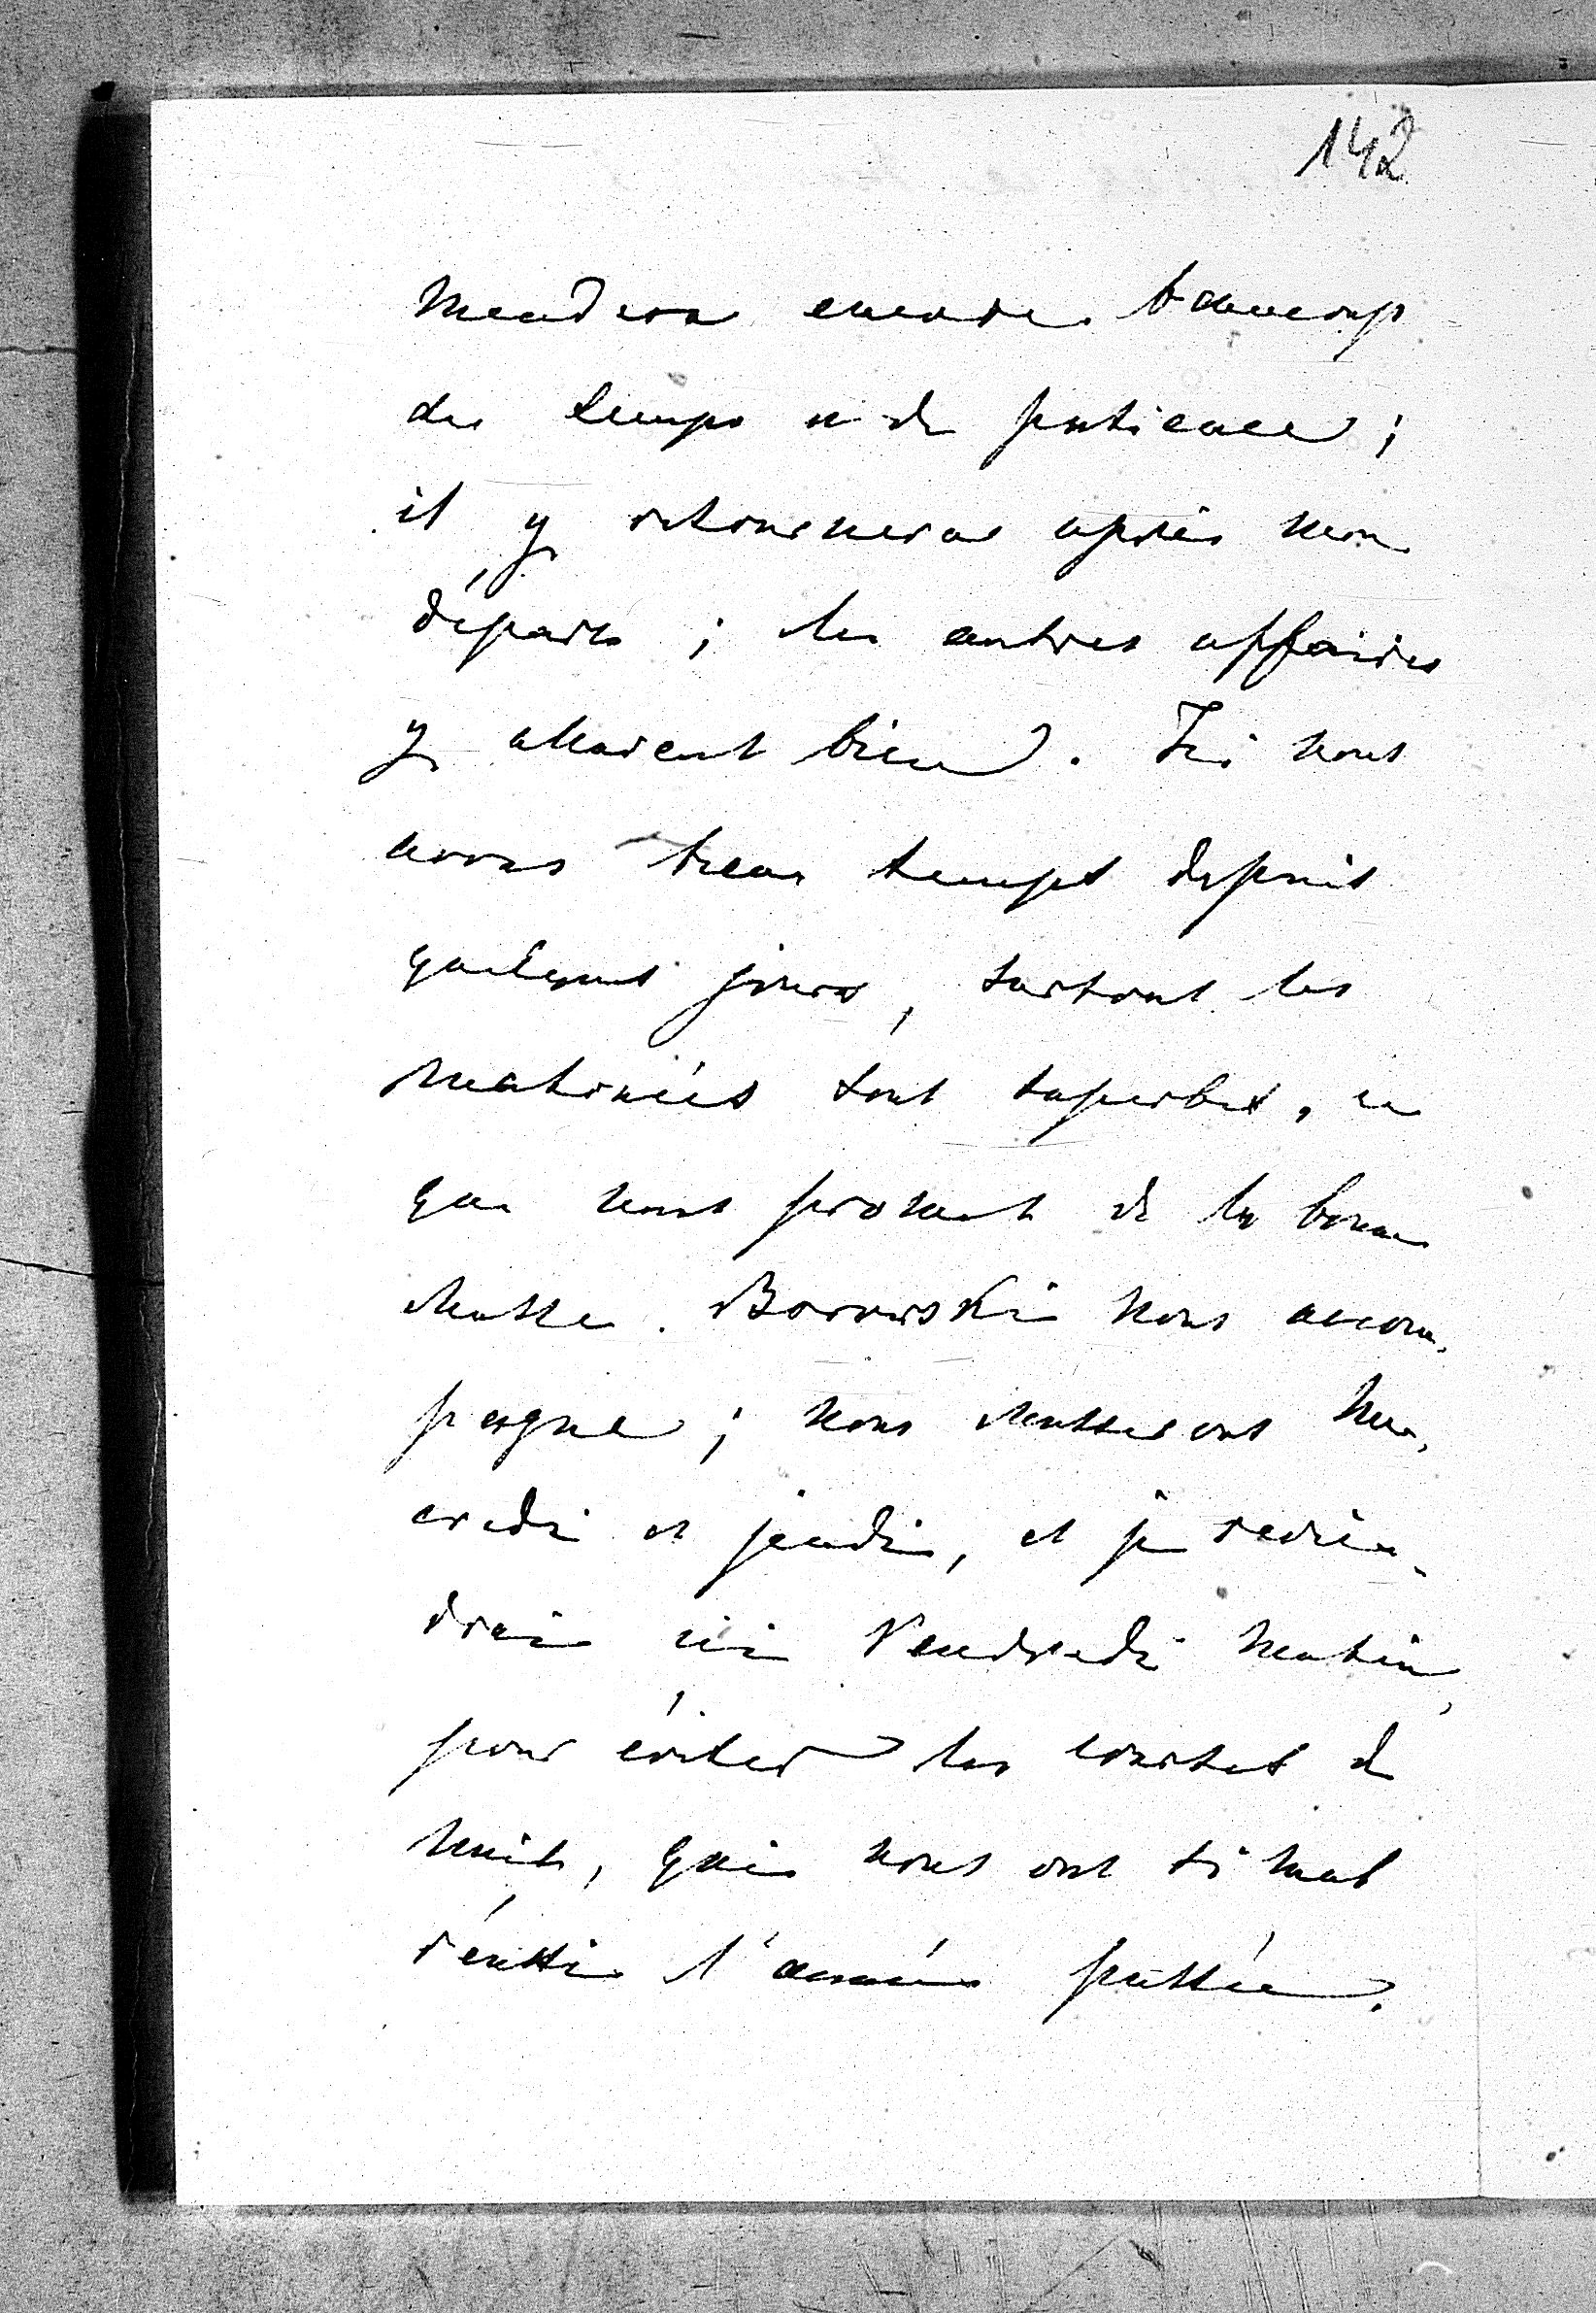 142
mandera encore beaucoup
de temps et de patience ;
il y retournera après mon
départ ; les autres affaires
y allaient bien. Ici nous
avons beau temps depuis
quelques jours, surtout les
matinées sont superbes, ce
que nous promet de la bonne
chasse. Borowski nous accom-
pagne ; nous chasserons mer-
credi et jeudi, et je revien-
drai ici Vendredi matin,
pour éviter les courses de
nuit, qui nous ont si mal
réussi l'année passée.